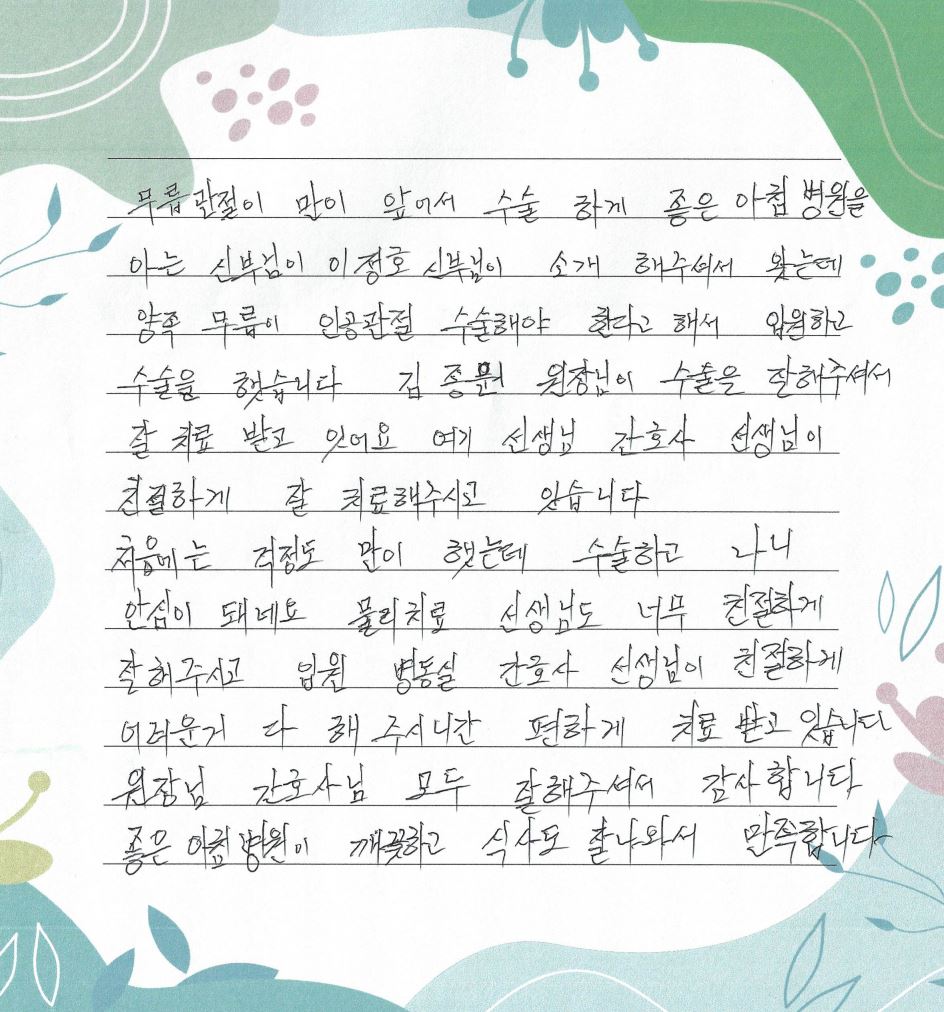 무릎관절이 많이 앞어서 수술 하게 좋은 아침 병원을
아는 신부님이 이정호 신부님이 소개 해주셔서 왓는데
양쪽 무릎이 인공관절 수술해야 한다고 해서 입원하고
수술을 햇습니다 김종원 원장님이 수술을 잘해주셔서
잘 치료 받고 잇어요 여기 선생님 간호사 선생님이
친절하게 잘 치료해주시고 잇습니다
처음에는 걱정도 많이 햇는데 수술하고 나니
안심이 돼네요 물리치료 선생님도 너무 친절하게
잘해주시고 입원 병동실 간호사 선생님이 친절하게
어려운거 다 해 주시니간 편하게 치료 받고 잇습니다
원장님 간호사님 모두 잘해주셔서 감사합니다
좋은 아침병원이 깨끗하고 식사도 잘나와서 만족합니다